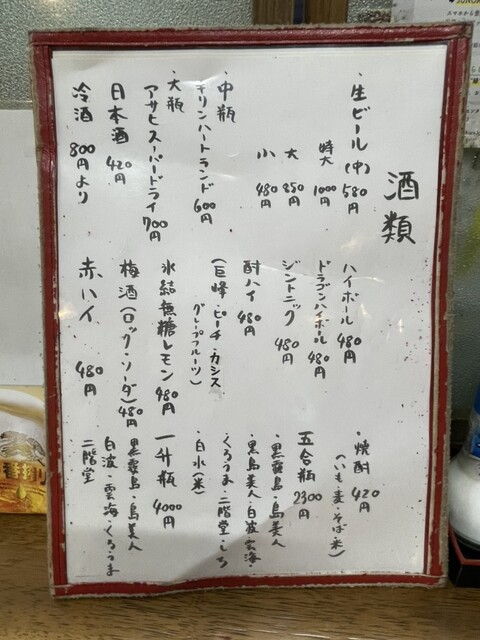 酒類
・生ビール(中) 580円
特大 1000円
大 850円
小 480円
・中瓶
キリンハートランド 600円
・大瓶
アサヒスーパードライ 700円
日本酒 420円
冷酒 800円より
ハイボール 480円
ドラゴンハイボール 480円
ジントニック 480円
酎ハイ 480円
(巨峰・ピーチ・カシス
グレープフルーツ)
氷結無糖レモン 480円
梅酒(ロック・ソーダ) 480円
赤ハイ 480円
・焼酎 420円
(いも・麦・そば・米)
五合瓶 2300円
・黒霧島・島美人
・黒島美人・白波・雲海
・くろうま・二階堂・しろ
・白水(米)
一升瓶 4000円
黒霧島・島美人
白波・雲海・くろうま
二階堂
一番搾り